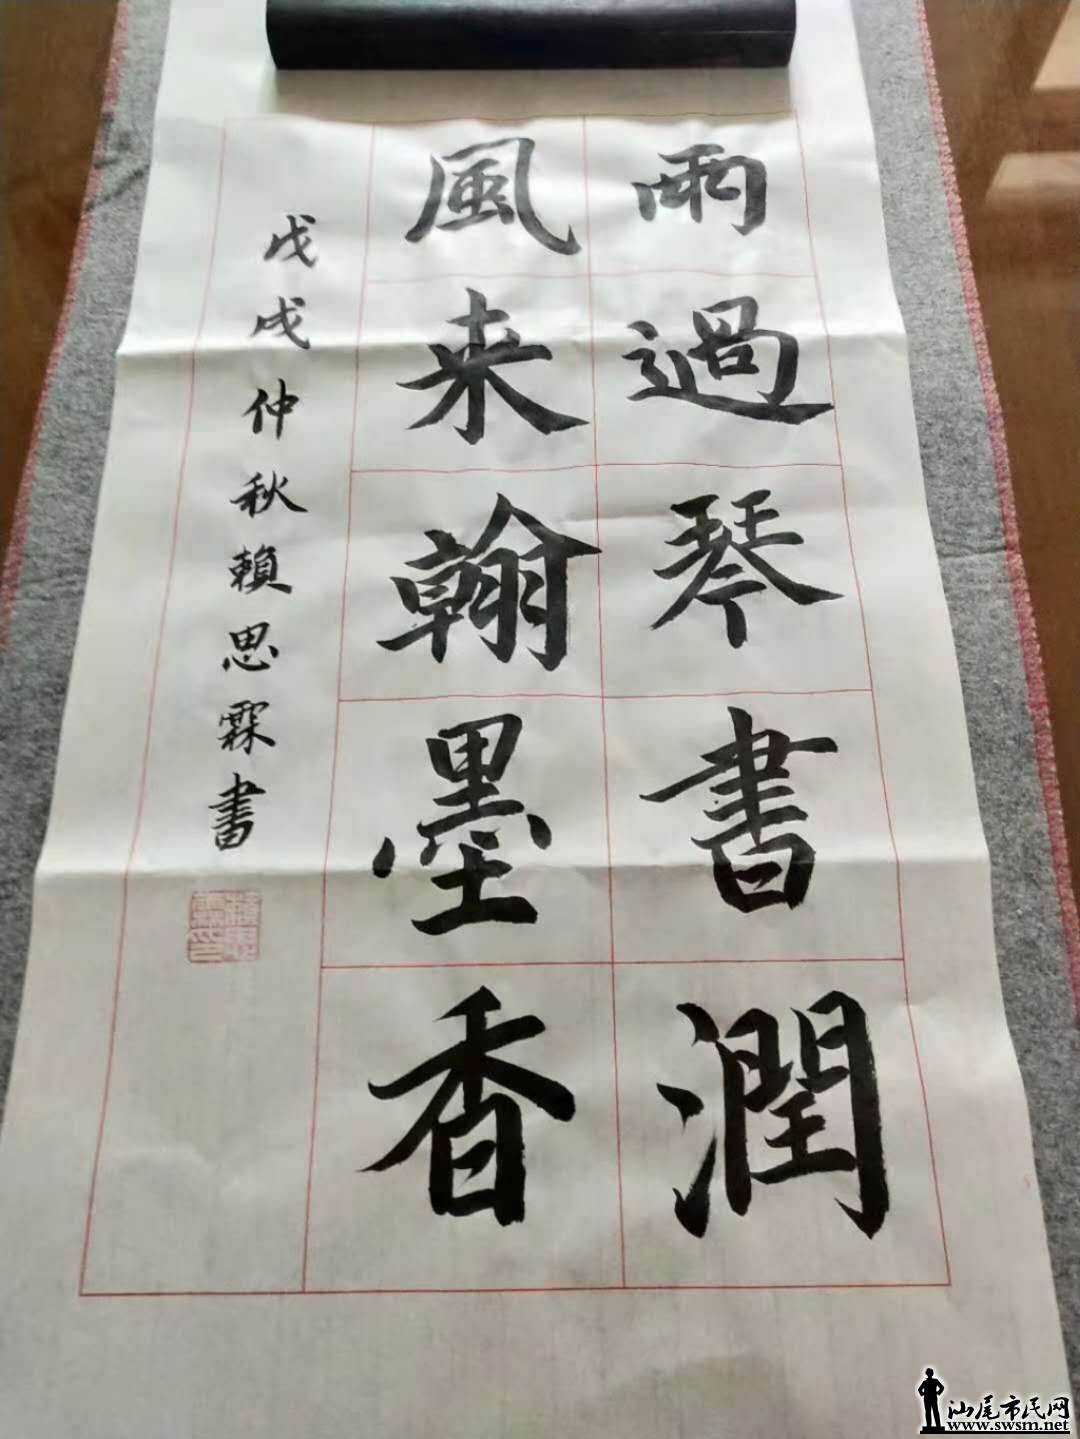 雨過琴書潤
風来翰墨香
戊戌仲秋賴思霖書
汕尾市民网
www.swsm.net